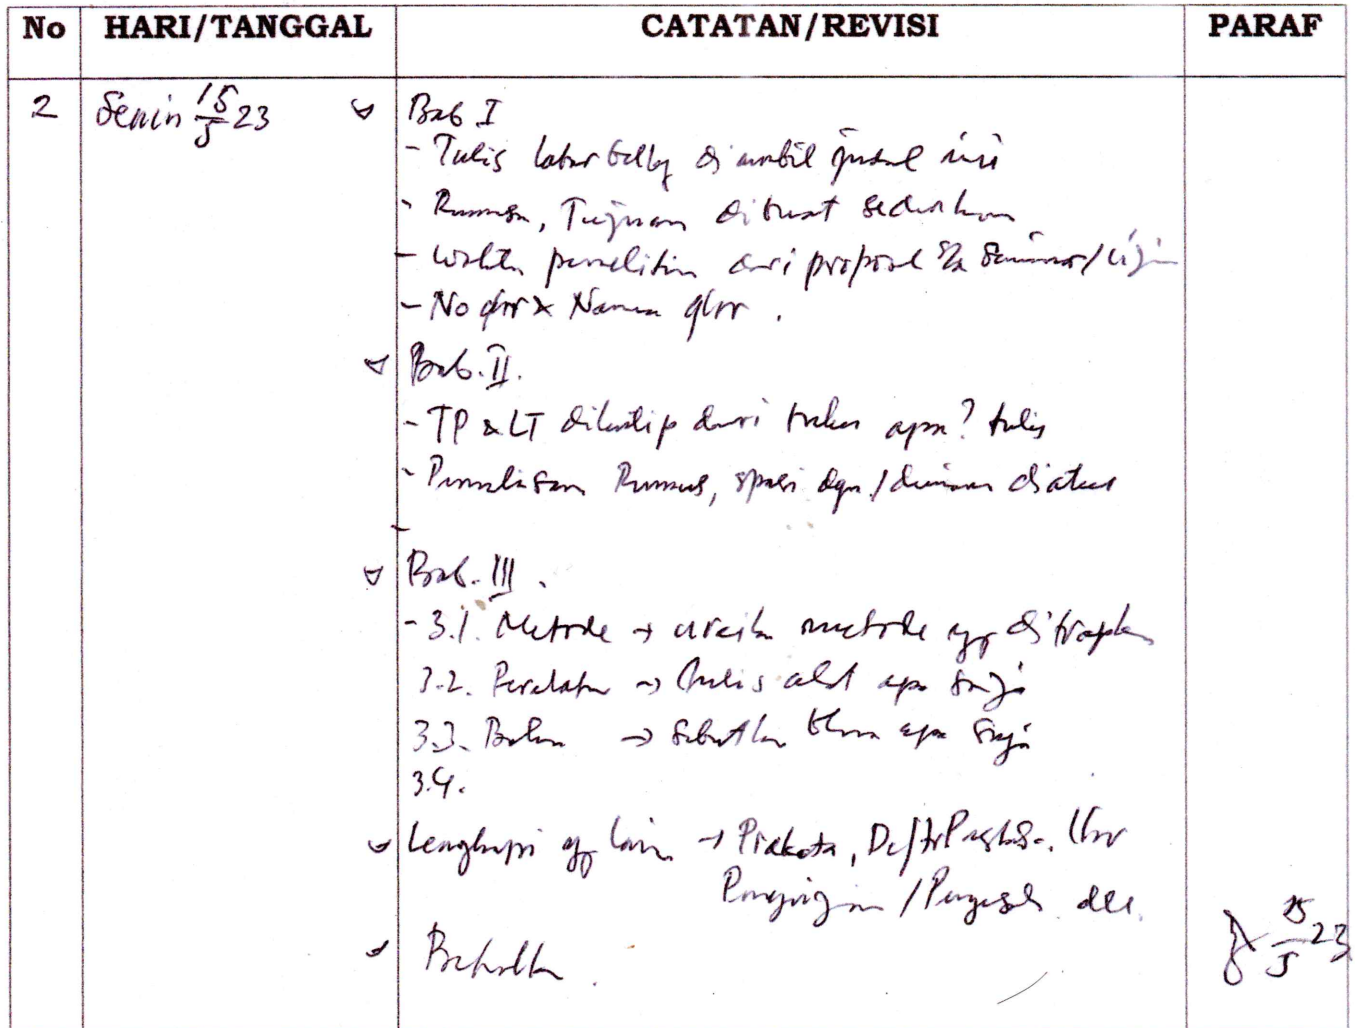 No HARI/TANGGAL CATATAN/REVISI PARAF
2 Senin 15/5 23 Bab I
- Tulis latar belkg diambil judul ini
- Rumusan, Tujuan dibuat
- Waktu penelitian dari proposal s/d Seminar/Ujian
- No gbr & Nama gbr.
Bab. II.
- TP & LT dikutip dari buku apa? tulis
- Penulisan Rumus, spasi dgn diatur
-
Bab. III.
- 3.1. Metode → uraikan metode yg diterapkan
3.2. Peralatan → tulis alat apa saja
3.3. Bahan → Sebutkan bhan apa saja
3.4.
Lengkapi yg lain → Prakata, Daftar Lbr
/Pengesah dll.
15/5 23